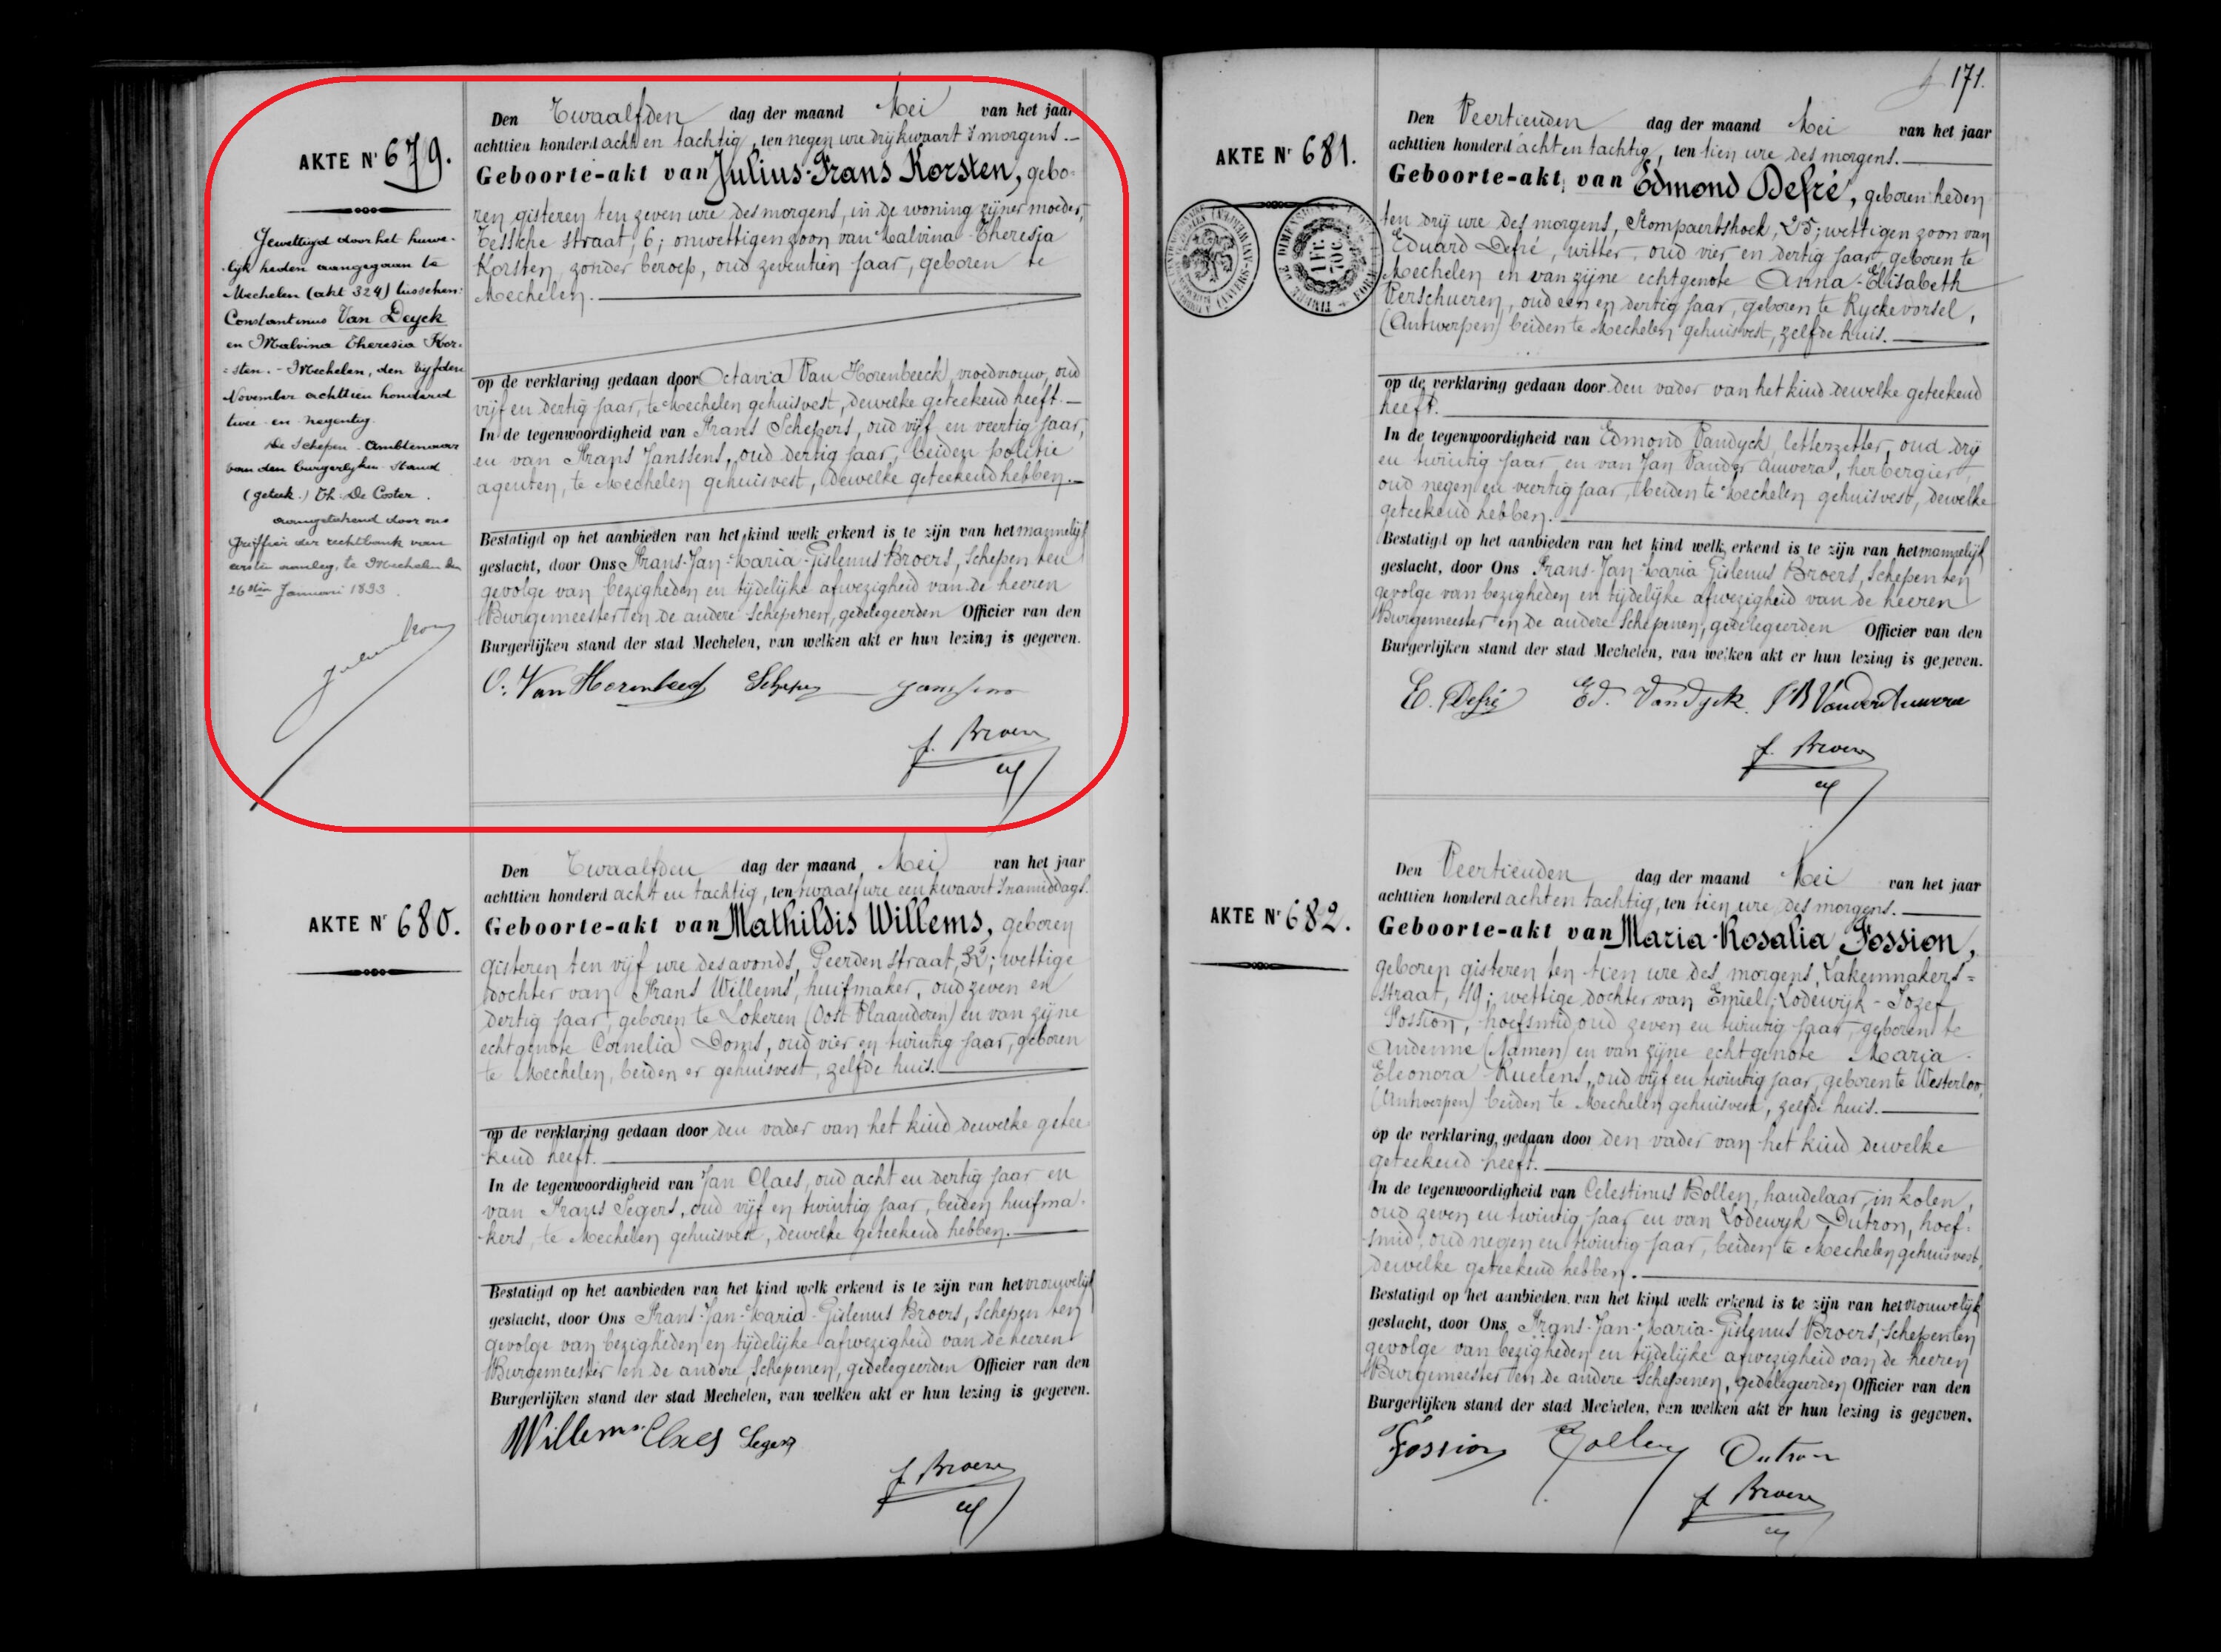 AKTE Nr 679.
Gewettigd door het huwe-
lijk heden aangegaan te
Mechelen (akt 324) tusschen:
Constantinus Van Deyck
en Malvina Theresia Kor-
= sten. - Mechelen, den vijfden
November achttien honderd
twee en negentig.
De Schepen - Ambtenaar
van den burgerlyken stand
(geteek.) Th. De Coster.
aangeteekend door ons
Griffier der rechtbank van
eersten aanleg, te Mechelen den
26sten Januari 1893.
Den Twaalfden dag der maand Mei van het jaar
achttien honderd acht en tachtig, ten negen ure drijkwaart 's morgens.
Geboorte-akt van Julius-Frans Korsten, gebo-
ren gisteren ten zeven ure des morgens, in de woning zijner moeder,
straat, 6; onwettigen zoon van Malvina Theresia
Korsten, zonder beroep, oud zeventien jaar, geboren te
Mechelen.
op de verklaring gedaan door Octavia Van Horenbeeck, vroedvrouw, oud
vijf en dertig jaar, te Mechelen gehuisvest, dewelke geteekend heeft.
In de tegenwoordigheid van Frans Schepers, oud vijf en veertig jaar,
en van Frans Janssens, oud dertig jaar, beiden politie
agenten, te Mechelen gehuisvest, dewelke geteekend hebben.
Bestatigd op het aanbieden van het kind welk erkend is te zijn van het mannelijk
geslacht, door Ons Frans-Jan-Maria-Gislenus Broers, Schepen ten
gevolge van bezigheden en tijdelijke afwezigheid van de heeren
Burgemeester en de andere Schepenen, gedelegeerden Officier van den
Burgerlijken stand der stad Mechelen, van welken akt er hun lezing is gegeven.
O. Van Horenbeeck Schepers Janssens
f. Broers
AKTE Nr 680.
Den Twaalfden dag der maand Mei van het jaar
achttien honderd acht en tachtig, ten twaalf ure een kwaart 's namiddags.
Geboorte-akt van Mathildis Willems, geboren
gisteren ten vijf ure des avonds, Peerden straat, 32; wettige
dochter van Frans Willems, huifmaker, oud zeven en
dertig jaar, geboren te Lokeren (Oost Vlaanderen) en van zijne
echtgenote Cornelia Doms, oud vier en twintig jaar, geboren
te Mechelen, beiden er gehuisvest, zelfde huis.
op de verklaring gedaan door den vader van het kind dewelke getee-
kend heeft.
In de tegenwoordigheid van Jan Claes, oud acht en dertig jaar en
van Frans Segers, oud vijf en twintig jaar, beiden huifma-
kers, te Mechelen gehuisvest, dewelke geteekend hebben.
Bestatigd op het aanbieden van het kind welk erkend is te zijn van het vrouwelijk
geslacht, door Ons Frans-Jan-Maria-Gislenus Broers, Schepen ten
gevolge van bezigheden en tijdelijke afwezigheid van de heeren
Burgemeester en de andere Schepenen, gedelegeerden Officier van den
Burgerlijken stand der stad Mechelen, van welken akt er hun lezing is gegeven.
Willems Claes Segers
f. Broers
171.
AKTE Nr 681.
TIMBRE DE DIMENSION
1 FR.
70 C.
Den Veertienden dag der maand Mei van het jaar
achttien honderd acht en tachtig, ten tien ure des morgens.
Geboorte-akt van Edmond Defré, geboren heden
ten drij ure des morgens, Stompaertshoek, 25; wettigen zoon van
Eduard Defré, witter, oud vier en dertig jaar, geboren te
Mechelen en van zijne echtgenote Anna-Elisabeth
Verschueren, oud een en dertig jaar, geboren te Ryckevorsel,
(Antwerpen) beiden te Mechelen gehuisvest, zelfde huis.
op de verklaring gedaan door den vader van het kind dewelke geteekend
heeft.
In de tegenwoordigheid van Edmond Vandyck, letterzetter, oud drij
en twintig jaar, en van Jan Vander Auwera, herbergier,
oud negen en veertig jaar, beiden te Mechelen gehuisvest, dewelke
geteekend hebben.
Bestatigd op het aanbieden van het kind welk erkend is te zijn van het mannelijk
geslacht, door Ons Frans-Jan-Maria Gislenus Broers, Schepen ten
gevolge van bezigheden en tijdelijke afwezigheid van de heeren
Burgemeester en de andere Schepenen, gedelegeerden Officier van den
Burgerlijken stand der stad Mechelen, van welken akt er hun lezing is gegeven.
E. Defré Ed. Vandyck J B Vander Auwera
f. Broers
AKTE Nr 682.
Den Veertienden dag der maand Mei van het jaar
achttien honderd acht en tachtig, ten tien ure des morgens.
Geboorte-akt van Maria-Rosalia Fossion,
geboren gisteren ten tien ure des morgens, Lakenmakers=
straat, 19; wettige dochter van Emiel-Lodewijk-Jozef
Fossion, hoefsmid, oud zeven en twintig jaar, geboren te
Andenne (Namen) en van zijne echtgenote Maria-
Eleonora Ruetens, oud vijf en twintig jaar, geboren te Westerloo,
(Antwerpen) beiden te Mechelen gehuisvest, zelfde huis.
op de verklaring gedaan door den vader van het kind dewelke
geteekend heeft.
In de tegenwoordigheid van Celestinus Bollen, handelaar in kolen,
oud zeven en twintig jaar en van Lodewyk Dutron, hoef=
smid, oud negen en twintig jaar, beiden te Mechelen gehuisvest,
dewelke geteekend hebben.
Bestatigd op het aanbieden van het kind welk erkend is te zijn van het vrouwelijk
geslacht, door Ons Frans-Jan-Maria-Gislenus Broers, Schepen ten
gevolge van bezigheden en tijdelijke afwezigheid van de heeren
Burgemeester en de andere Schepenen, gedelegeerden Officier van den
Burgerlijken stand der stad Mechelen, van welken akt er hun lezing is gegeven.
Fossion Bollen Dutron
f. Broers